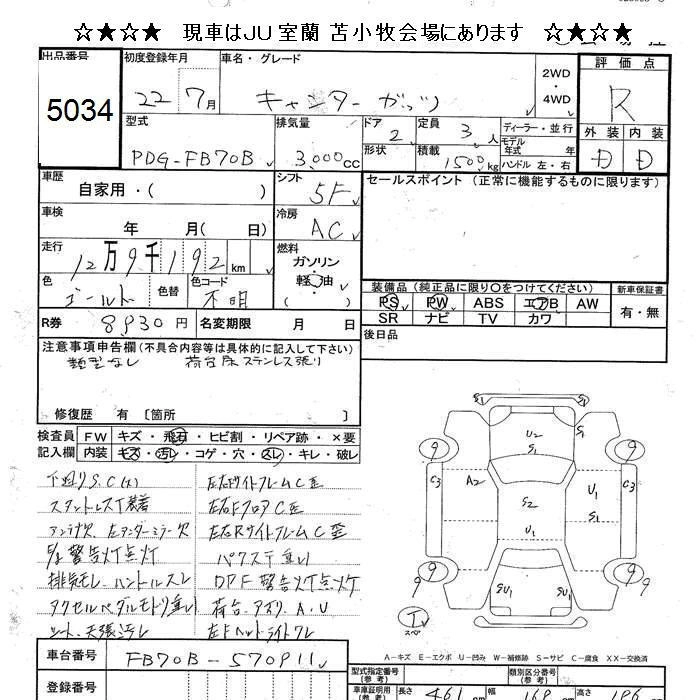 ☆★☆★ 現車はＪＵ室蘭 苫小牧会場にあります ☆★☆★
出品番号 5034
初度登録年月 22 7月
車名・グレード キャンター ガッツ
2WD・4WD
評価点 R
外装 D 内装 D
型式 PDG-FB70B
排気量 3,000cc
ドア 2
形状
定員 3人
積載 1500kg
ディーラー・並行
モデル年式 年
ハンドル 左・右
車歴 自家用・( )
シフト 5F
セールスポイント (正常に機能するものに限ります)
車検 年 月( 日)
冷房 AC
走行 12万9千192km
燃料 ガソリン・軽油・( )
色 ゴールド
色替
色コード 不明
装備品 (純正品に限り○をつけてください)
PS PW ABS エアB AW
SR ナビ TV カワ
新車保証書 有・無
R券 8930円
名変期限 月 日
後日品
注意事項申告欄 (不具合内容等は具体的に記入して下さい)
類型なし 荷台床ステンレス張り
修復歴 有 [箇所 ]
検査員記入欄
FW キズ・飛石・ヒビ割・リペア跡・×要
内装 キズ・汚レ・コゲ・穴・スレ・キレ・破レ
下廻りS.C(大)
スタットレスT装着
アンテナ欠、左アンダーミラー欠
警告灯点灯
排気モレ、ハンドルスレ
アクセルペダルモドリ重い
シート、天張汚レ
左右サイドフレームC歪
左右FフロアC歪
左右RサイドフレームC歪
パワステ重い
DPF警告灯点灯
荷台、アオリA、U
左Fヘッドライトワレ
S1 S1
U2 S1
S1
9 9
C3 A2 S2 U1 S1 C3
U1
SU1 SU1
9 9 9 9
T スペア
A－キズ E－エクボ U－凹み W－補修跡 S－サビ C－腐食 XX－交換済
車台番号 FB70B-570911
登録番号
型式指定番号 (参考)
類別区分番号 (参考)
車庫証明用 (参考) 長さ 461 幅 169 高さ